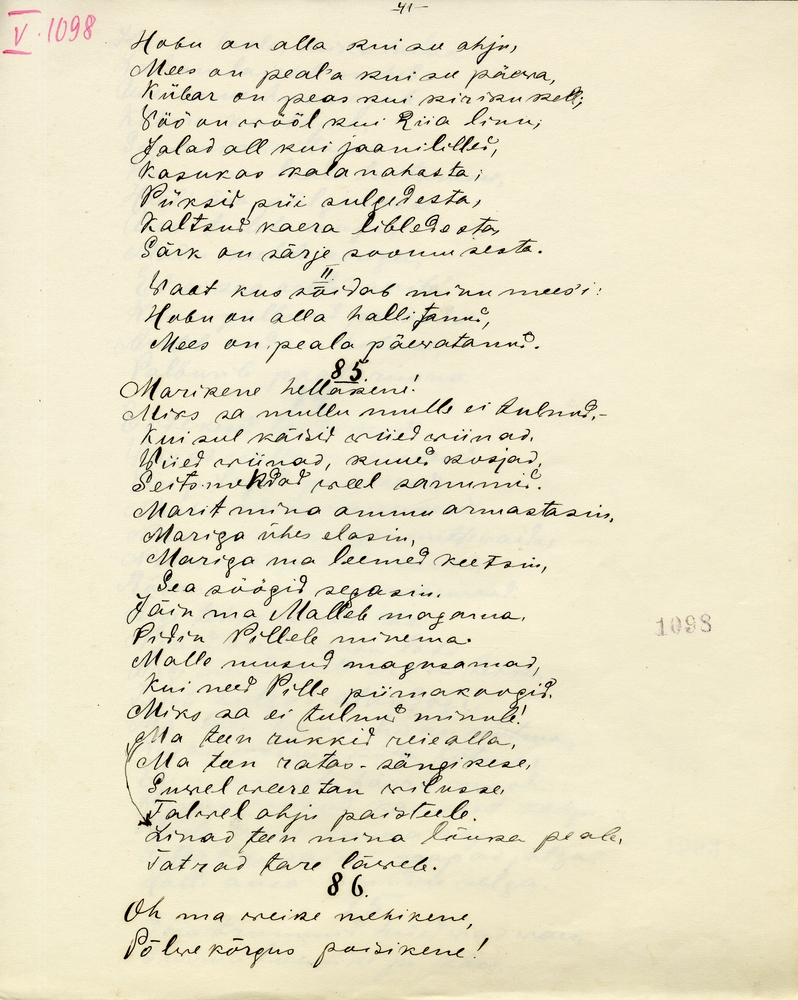 -41-
V. 1098
Hobu on alla kui su ahju,
Mees on peala kui su päewa,
Kübar on peas kui kiriku kell;
Wöö on wööl kui Riia linn;
Jalad all kui jaanililled,
Kasukas kalanahasta;
Püksid püi sulgedesta,
Kaltsud kaera libledesta,
Särk on särje soomusesta.
II.
Waat kus sõidab minu meesi:
Hobu on alla hallitanud,
Mees on peala päewatanud.
85.
Marikene hellakene!
Miks sa mullu mulle ei tulnud,-
Kui sul käisid wiied wiinad.
Wiied wiinad, kuued kosjad,
Seitse weel sanumid.
Marit mina ammu armastasin,
Mariga ühes elasin,
Mariga ma leemed keetsin,
Sea söögid segasin.
Jäin ma Malleb magama,
Pidin Pillele minema.
Malle musud magusamad,
Kui need Pille piimakoogid.
Miks sa ei tulnud minule!
Ma teen rukkid reiealla,
Ma teen ratas-sängikese,
Suwel weeretan wilusse,
Talwel ahju paisteele.
Linad teen mina lõuka peale,
Tatrad tare läwele.
1098
86.
Oh ma weike mehikene,
Põlwekõrgus poisikene!